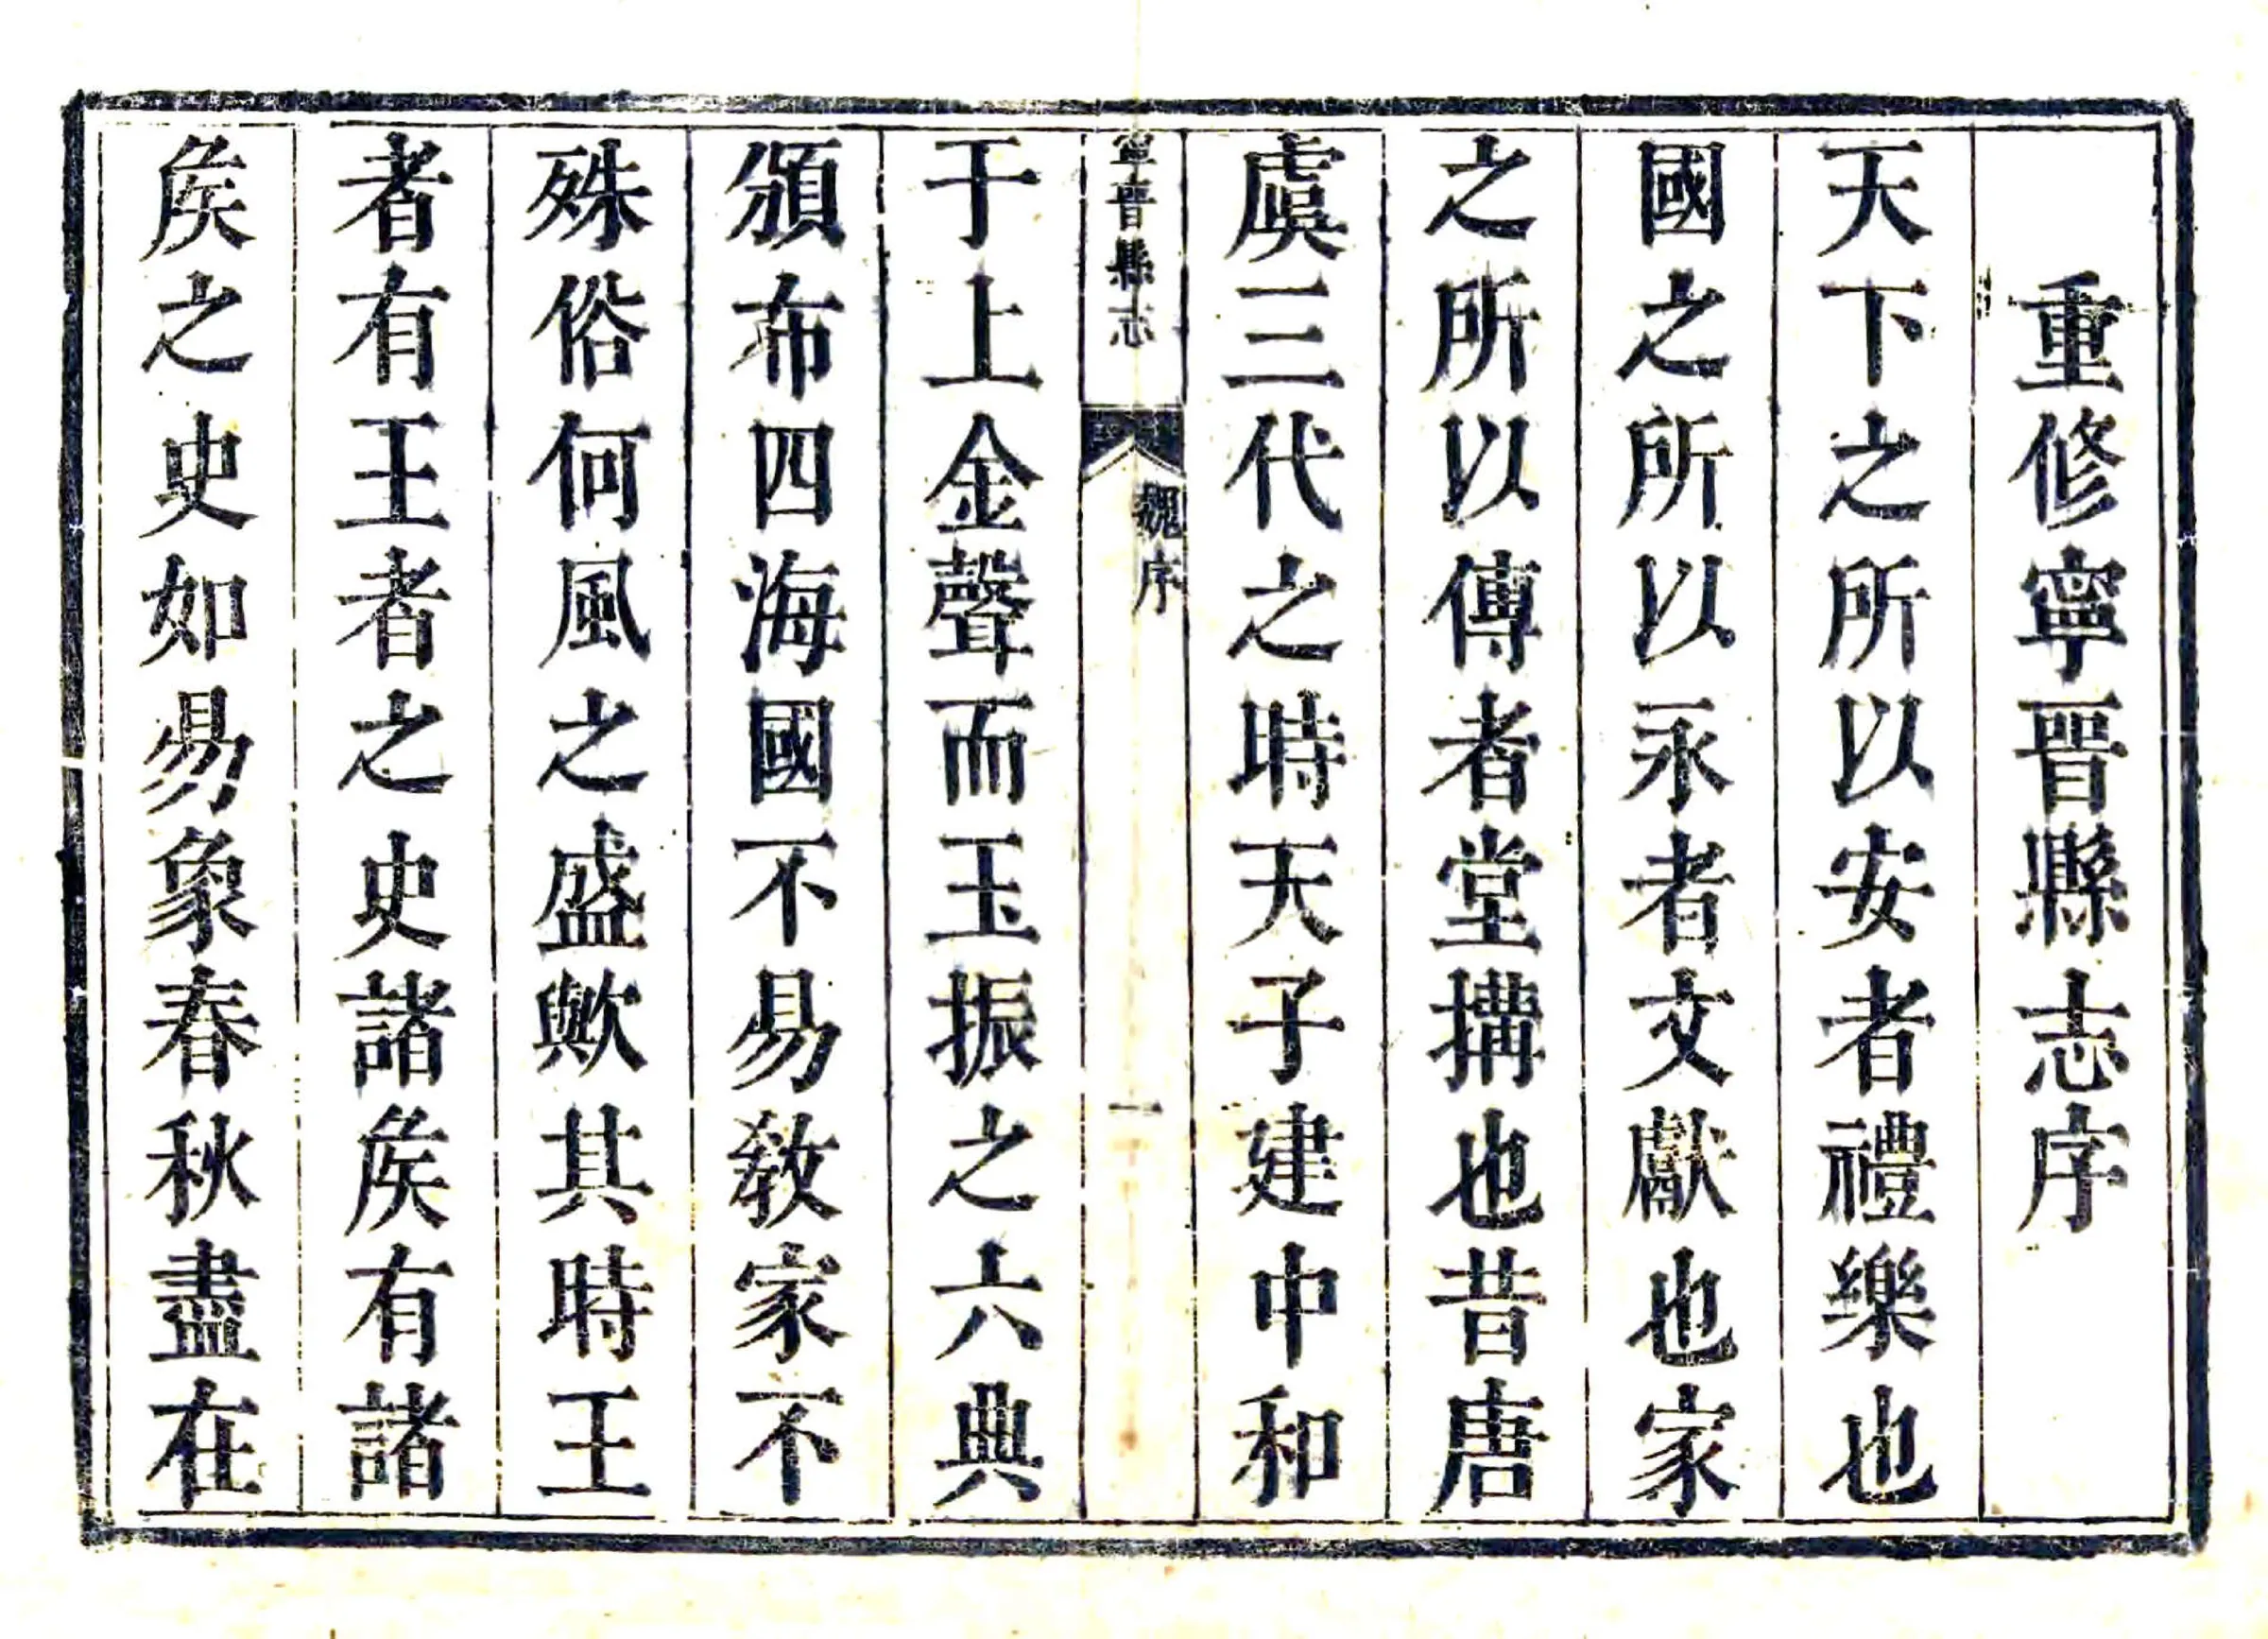 重修寧晉縣志序
天下之所以安者禮樂也
國之所以永者文獻也家
之所以傳者堂搆也昔唐
虞三代之時天子建中和
寧晉縣志
魏序
一
于上金聲而玉振之六典
頒布四海國不易敎家不
殊俗何風之盛歟其時王
者有王者之史諸矦有諸
矦之史如易象春秋盡在